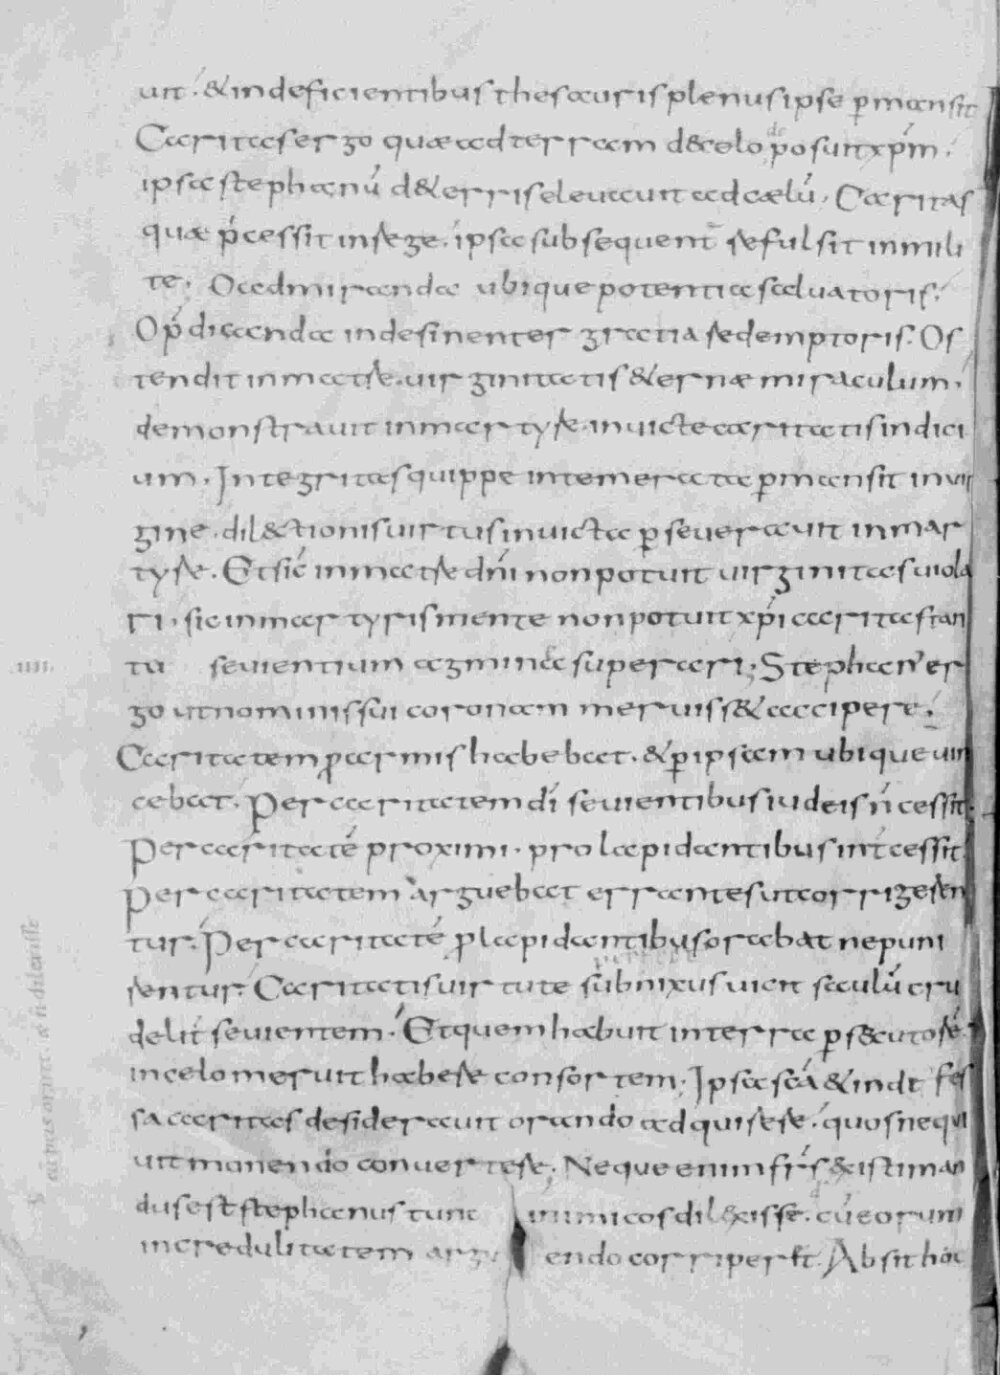 uit. & indeficientibus thesauris plenus ipse ꝑmansit
Caritas ergo quae ad terram de celo deposuit xp̄m.
ipsa stephanū de terris eleuauit ad caelū. Caritas
quae p̄cessit in rege. ipsa subsequent̄ refulsit in mili
te. O admiranda ubique potentia saluatoris.
O p̄dicanda indesinenter gratia redemptoris. Os
tendit in matre. uirginitatis &ernae miraculum.
demonstrauit in martyre. inuicte caritatis indici
um. Integritas quippe intemerata ꝑmansit in uir
gine. dil&ionis uirtus inuicta ꝑseuerauit in mar
tyre. Et sic in matre dn̄i non potuit uirginitas uiola
ri. sic in martyris mente non potuit xp̄i caritas tan
ta seuientium agmina superari. Stephan' er
go ut nominis sui coronam meruiss& accipere.
Caritatem ꝓ armis habebat. & ꝑ ipsam ubique uin
cebat. Per caritatem dī seuientibus iudeis n̄ cessit.
Per caritatē proximi. pro lapidantibus int̄cessit.
Per caritatem arguebat errantes ut corrigeren
tur. Per caritatē ꝓ lapidantibus orabat ne puni
rentur. Caritatis uirtute subnixus uicit saulū cru
delit̄ seuientem. Et quem habuit in terra ꝑsecutorē.
in celo meruit habere consortem. Ipsa sc̄a & indefes
sa caritas desiderauit orando adquirere. quos nequi
uit monendo conuertere. Neque enim fr̄s &istiman
dus est stephanus tunc inimicos dil&isse. cū eorum
incredulitatem arguendo corriper&. Absit hoc